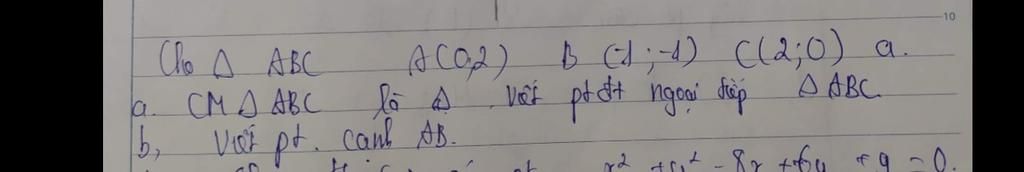 10
Cho Δ ABC A(0,2) B (-1;-1) C(2;0) a.
a. CM Δ ABC là Δ. Viết pt đt ngoại tiếp Δ ABC.
b, Viết pt. canh AB.
x² + y² - 8x + 6y + 9 = 0.